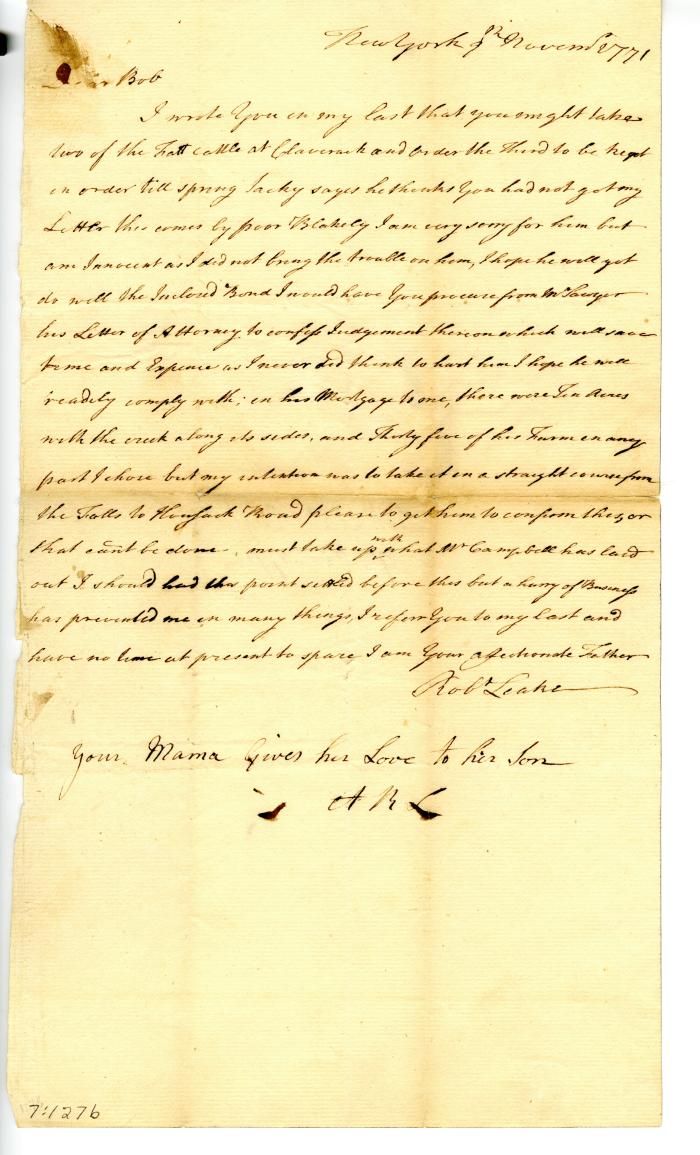 New York 9th Novemr 1771
Dear Bob
I wrote You in my last that you might take
two of the Fatt cattle at Claverack and order the Third to be kept
in order till spring Jacky sayes he thinks You had not got my
Letter this comes by poor Blakely I am very sorry for him but
am Innocent as I did not bring the trouble on him, I hope he will yet
do well the Inclosed Bond I would have You procure from Mr Sawyer
his Letter of Attorney to confess Judgement thereon which will save
time and Expence as I never did think to hurt him I hope he will
readily comply with; in his Mortgage to me, there were Ten Acres
with the creek along its sides, and Thirty five of his Farm in any
part I chose but my intention was to take it in a straight course from
the Falls to Hoosack Road please to get him to confirm this, or
that cant be done, must take up with what Mr Campbell has laid
out I should had this point settled before this but a hurry of Business
has prevented me in many things, I referr You to my last and
have no time at present to spare I am Your affectionate Father
Robt Leake
Your Mama Gives her Love to her Son
A R L
7:1276